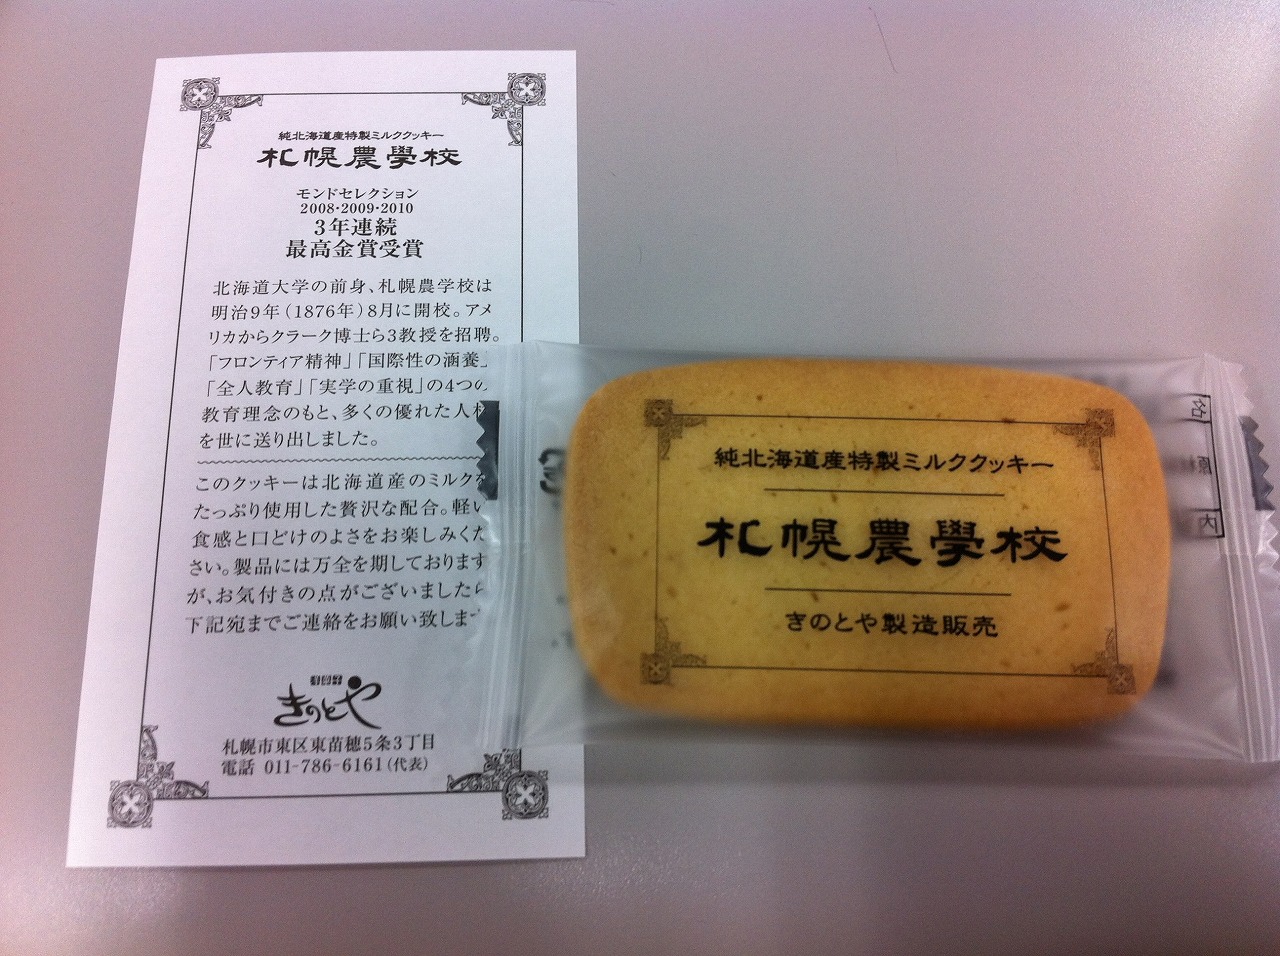 純北海道産特製ミルククッキー
札幌農學校
モンドセレクション
2008・2009・2010
3年連続
最高金賞受賞
北海道大学の前身、札幌農学校は
明治9年(1876年)8月に開校。アメ
リカからクラーク博士ら3教授を招聘。
「フロンティア精神」「国際性の涵養」
「全人教育」「実学の重視」の4つの
教育理念のもと、多くの優れた人材
を世に送り出しました。
このクッキーは北海道産のミルクを
たっぷり使用した贅沢な配合。軽い
食感と口どけのよさをお楽しみくだ
さい。製品には万全を期しております
が、お気付きの点がございましたら
下記宛までご連絡をお願い致します
きのとや
札幌市東区東苗穂5条3丁目
電話 011-786-6161(代表)
純北海道産特製ミルククッキー
札幌農學校
きのとや製造販売
名
原
内